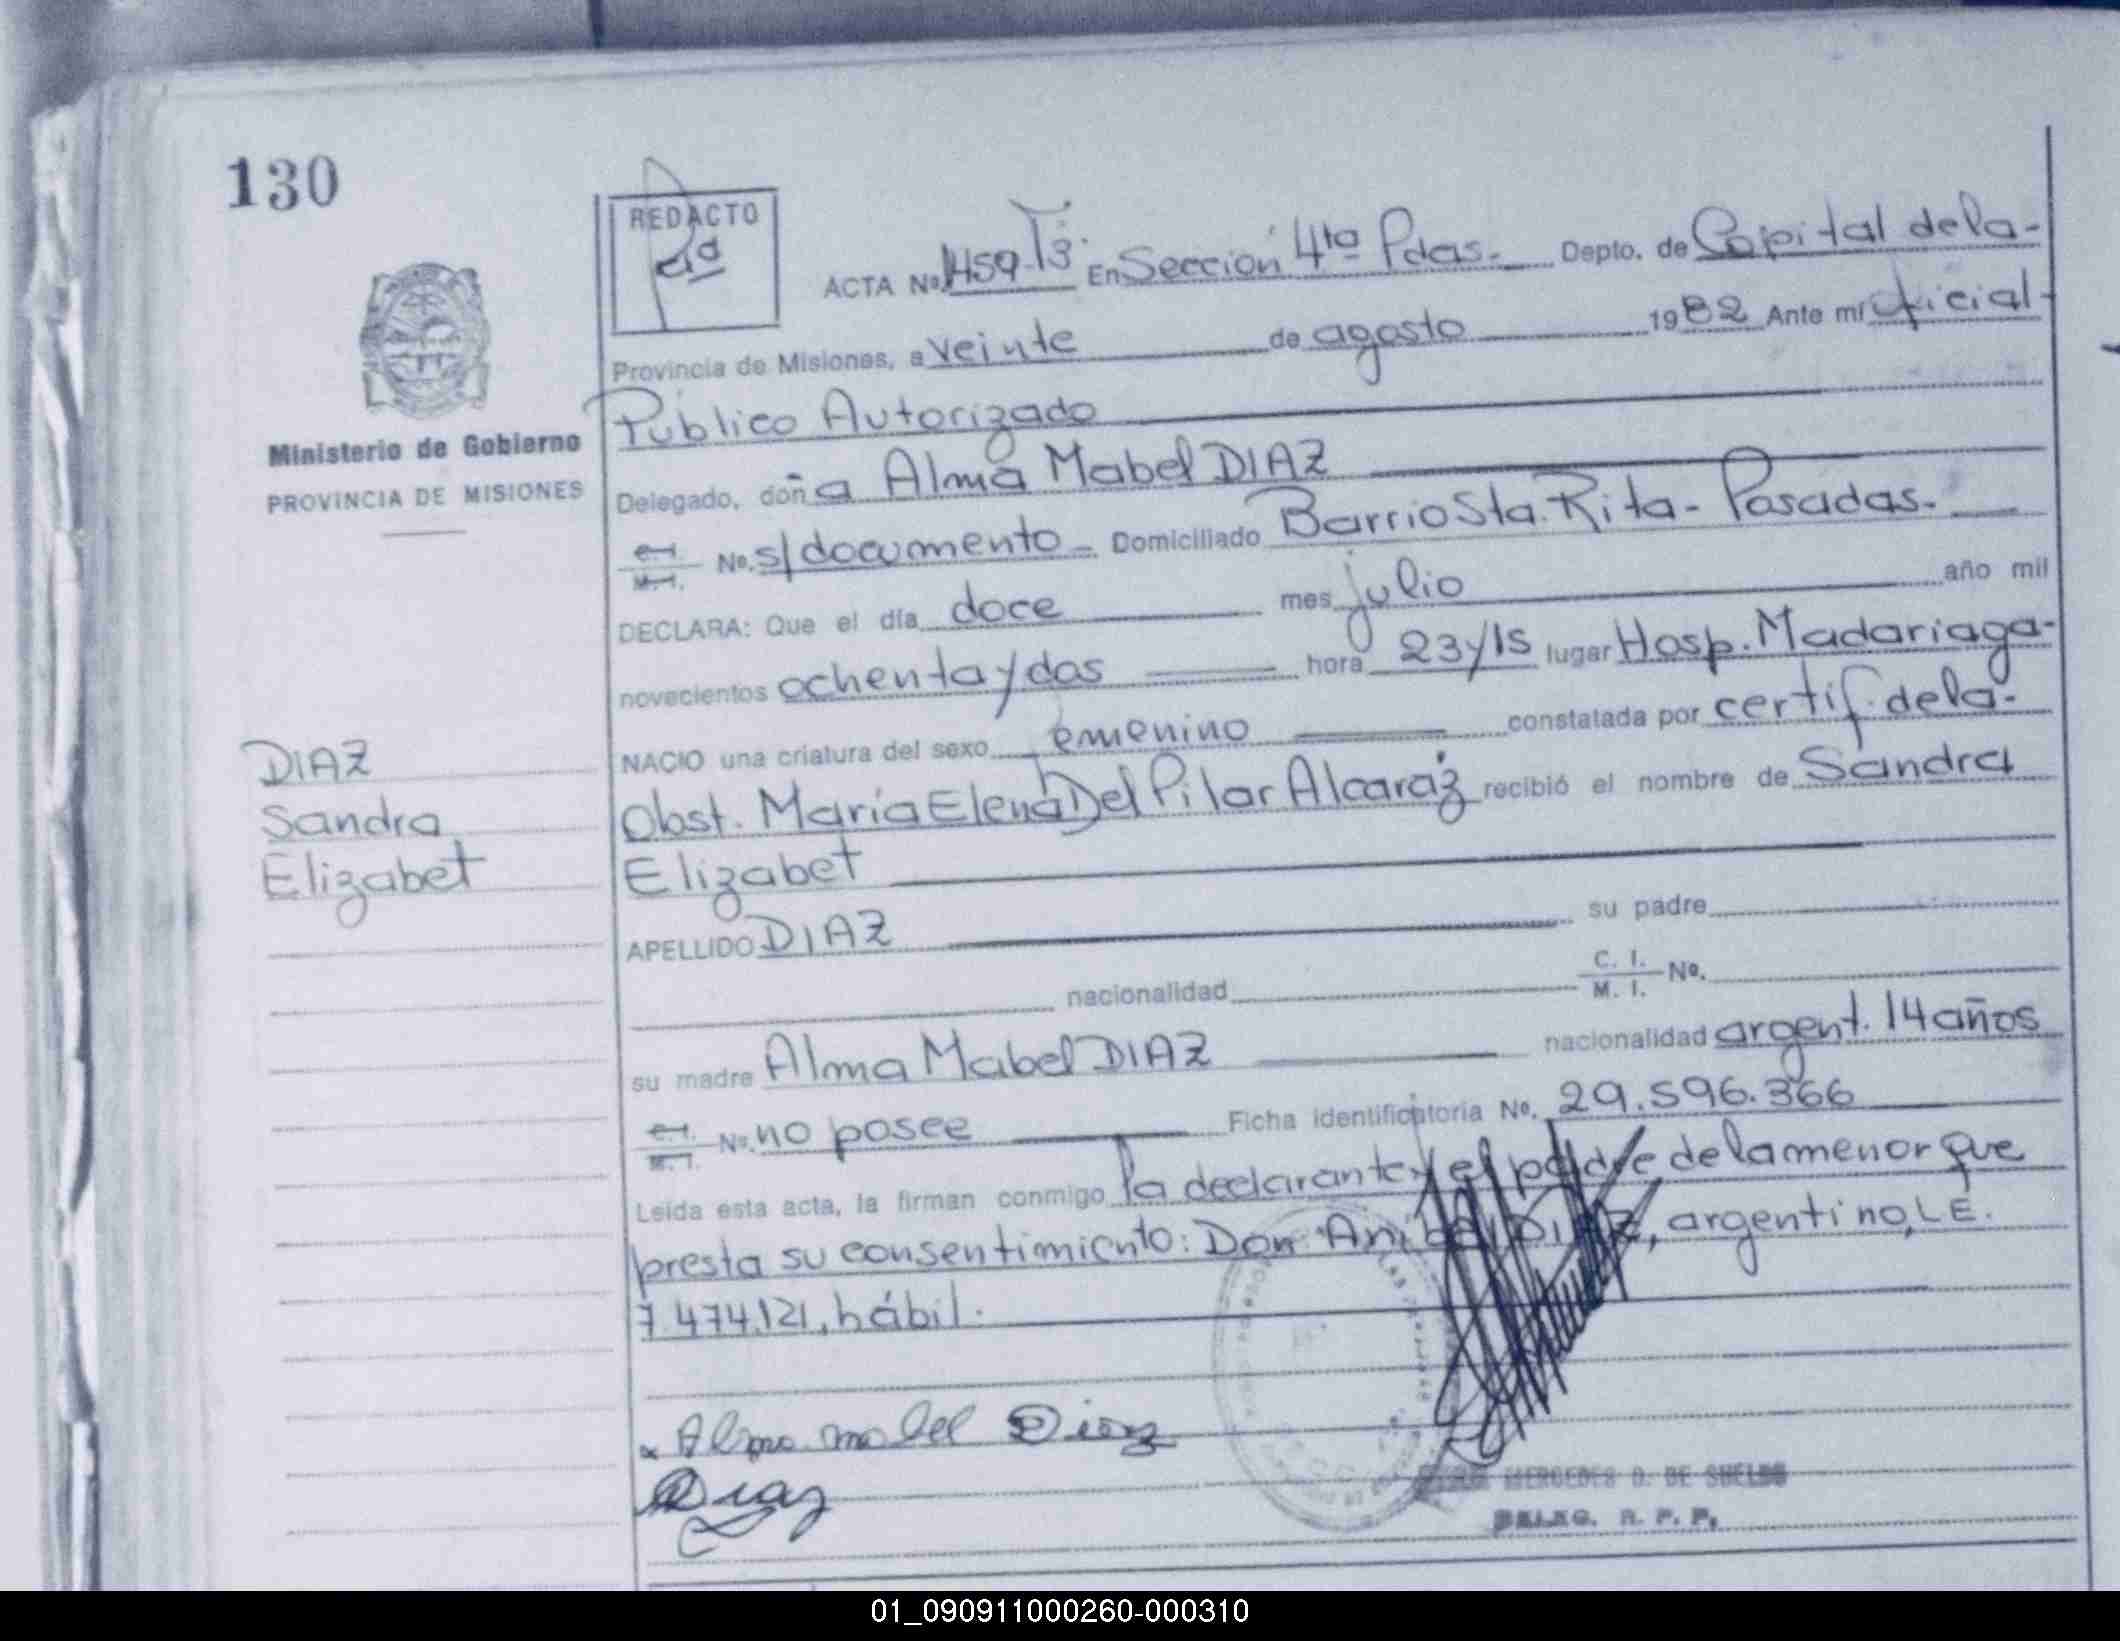 130
REDACTO
ACTA Nº 1459 T3 En Sección 4ta Pdas. Depto. de Capital de la-
Provincia de Misiones, a veinte de agosto 1982 Ante mí oficial-
Público Autorizado
Ministerio de Gobierno
PROVINCIA DE MISIONES
Delegado, doña Alma Mabel DIAZ
C.I. M.I. Nº. s/documento - Domiciliado Barrio Sta. Rita - Posadas.
DECLARA: Que el día doce mes julio año mil
novecientos ochenta y dos hora 23 y 15 lugar Hosp. Madariaga-
NACIO una criatura del sexo femenino constatada por certif. de la-
DIAZ
Sandra
Elizabet
Obst. María Elena Del Pilar Alcaráz recibió el nombre de Sandra
Elizabet
APELLIDO DIAZ su padre
nacionalidad C. I. M. I. Nº.
su madre Alma Mabel DIAZ nacionalidad argent. 14 años
C.I. M.I. Nº. no posee Ficha identificatoria Nº. 29.596.366
Leída esta acta, la firman conmigo la declarante y el padre de la menor que
presta su consentimiento: Don Anibal DIAZ, argentino, L E.
7.474.121, hábil.
Alma mabel Diaz
Diaz
MERCEDES D. DE
R. P. P.
01_090911000260-000310